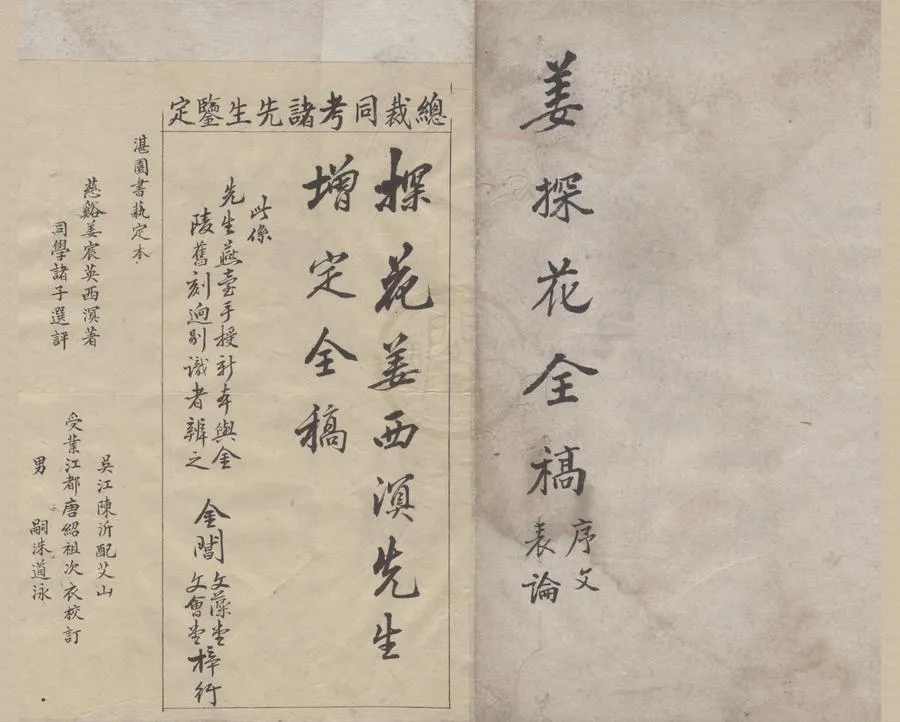 姜探花全稿
序文
表論
總裁同考諸先生鑒定
探花姜西溟先生
增定全稿
此係
先生燕臺手授新本與金
陵舊刻逈别識者辨之
金閶
文藻堂
文會堂
梓行
湛園書藝定本
慈谿姜宸英西溟著
同學諸子選評
吳江陳沂配艾山
受業江都唐紹祖次衣校訂
男 嗣洙道泳